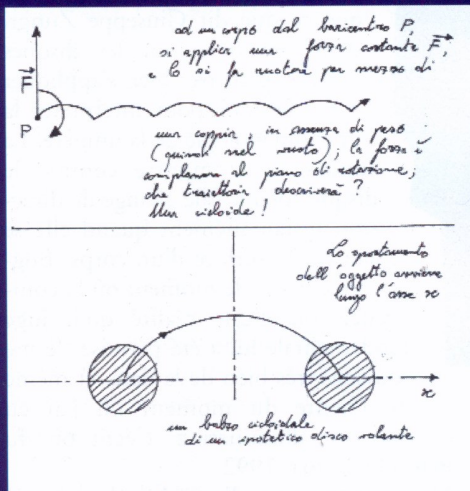 ad un corpo dal baricentro P,
si applica una forza costante F,
e lo si fa ruotare per mezzo di
F
P
una coppia, in assenza di peso
(quindi nel vuoto); la forza è
complanare al piano di rotazione;
che traiettoria descriverà?
Una cicloide!
Lo spostamento
dell'oggetto avviene
lungo l'asse x
x
un balzo cicloidale
di un ipotetico disco volante